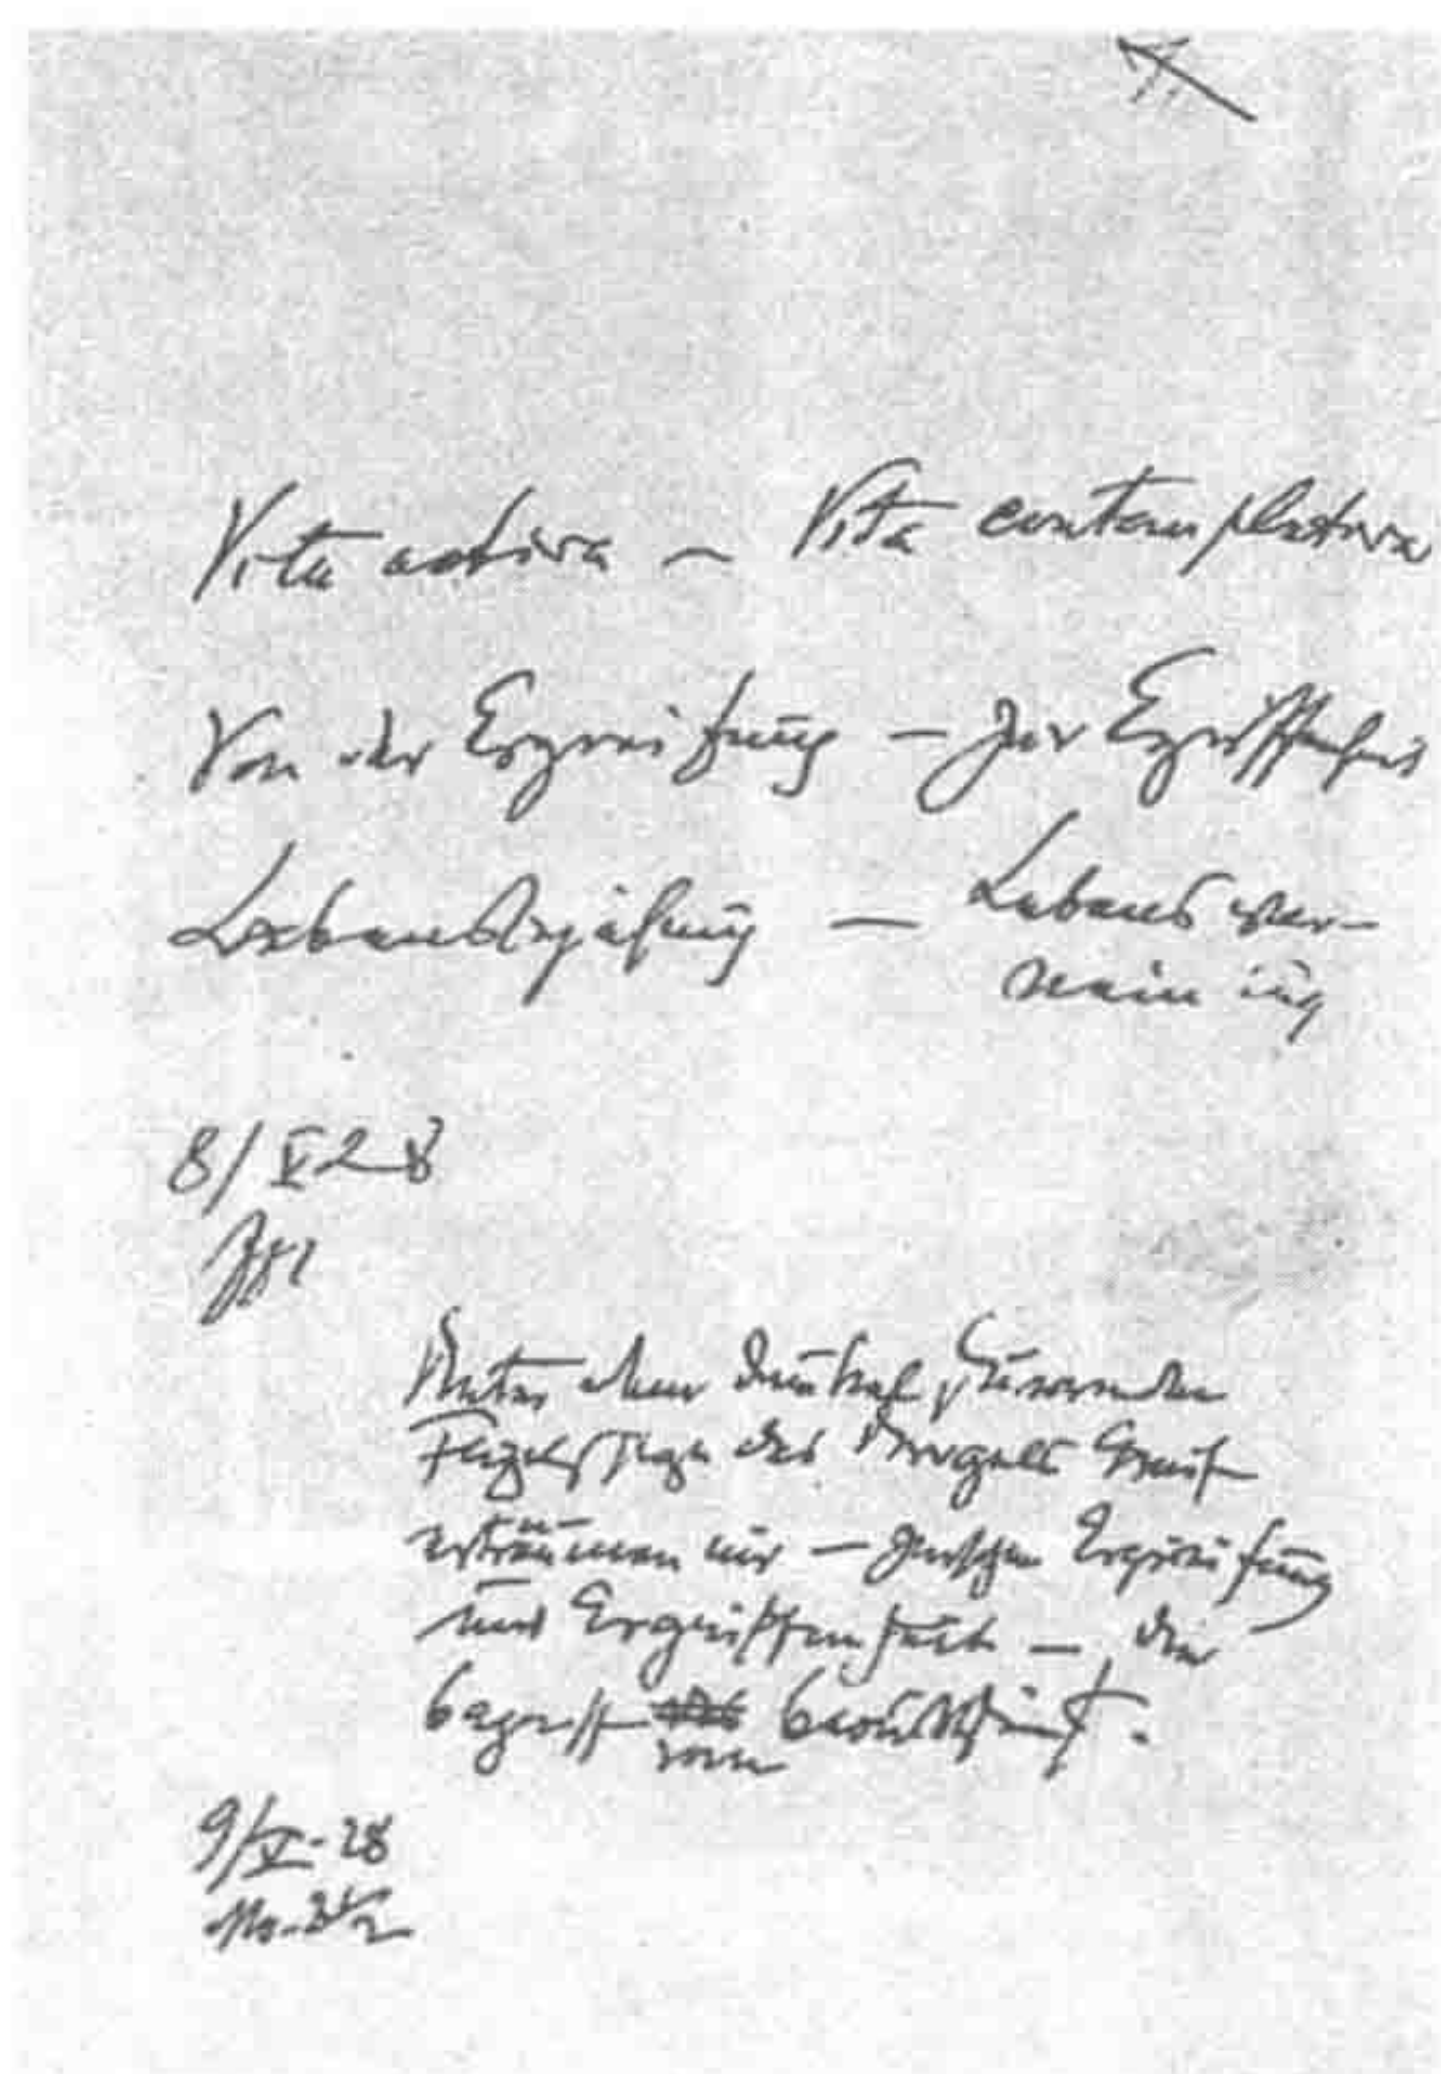 Vita activa – Vita contemplativa
Von der Ergreifung – zur Ergriffenheit
Lebensbejahung – Lebensver-
neinung
8/V 28
Unter dem dunkel surrenden
Flügelschlage des Vogels Greif
erträumen wir – zwischen Ergreifung
und Ergriffenheit – den
Begriff vom Bewußtsein.
9/V-28